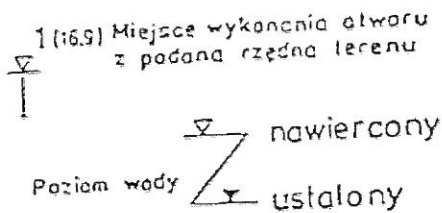 1 (16.9) Miejsce wykonania otworu
z podaną rzędną terenu
nawiercony
Poziom wody
ustalony